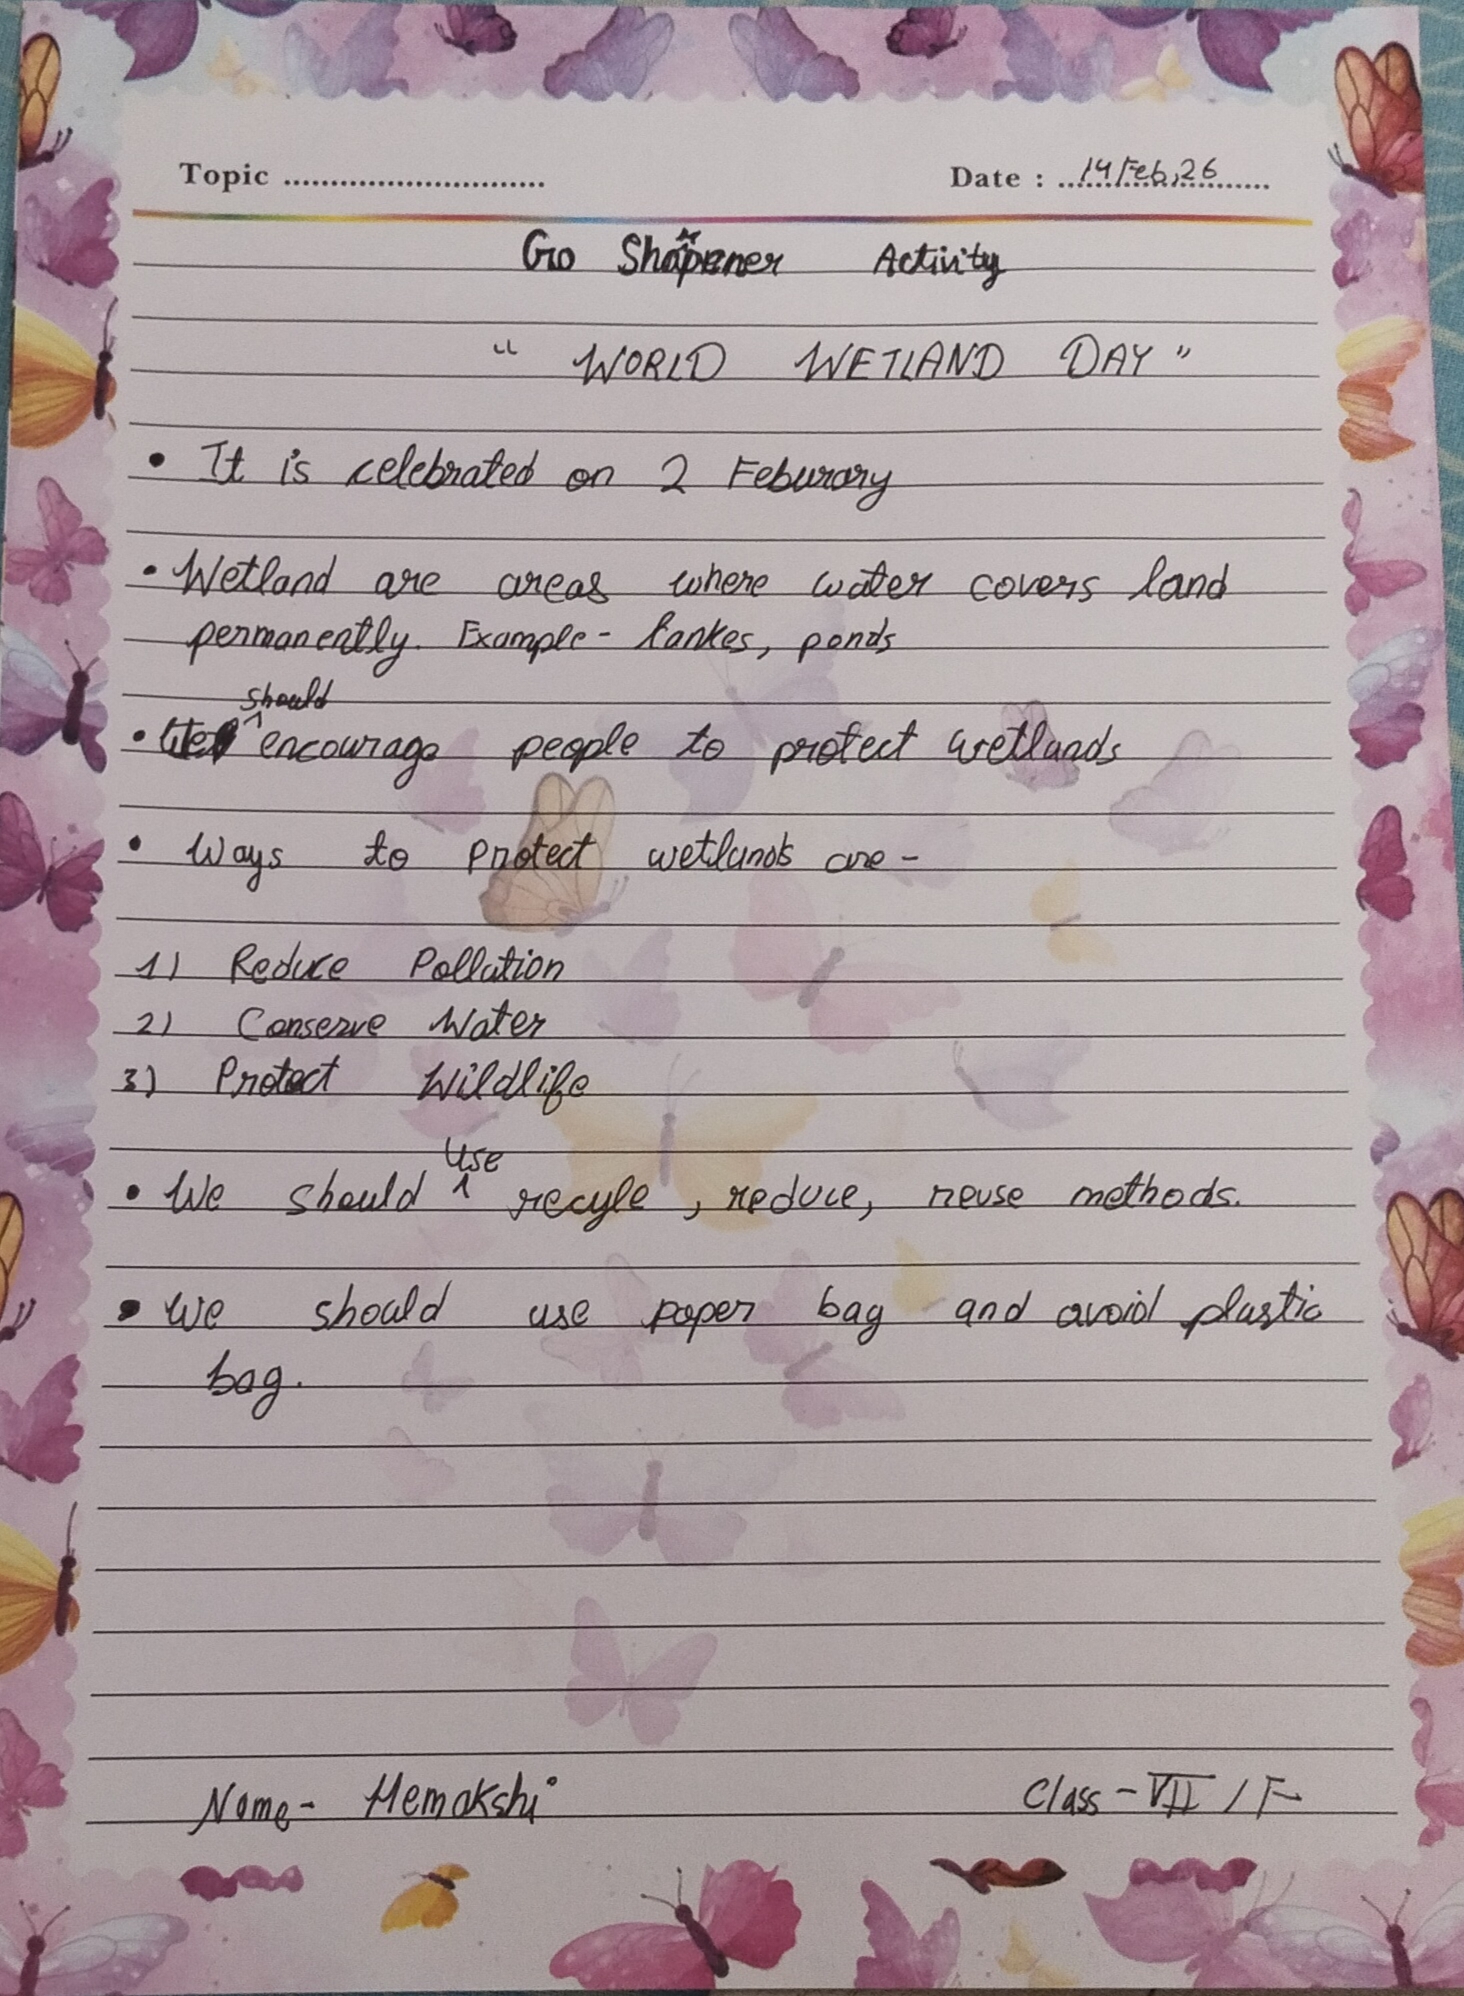 Topic ............................
Date : 14 Feb, 26
Go Sharpener Activity
" WORLD WETLAND DAY "
• It is celebrated on 2 Feburary
• Wetland are areas where water covers land
permanently. Example - lankes, ponds
• We should encourage people to protect wetlands
• Ways to protect wetlands are -
1) Reduce Pollution
2) Conserve Water
3) Protect Wildlife
• We should use recyle , reduce, reuse methods.
• We should use paper bag and avoid plastic
bag.
Name - Hemakshi
Class - VII / F